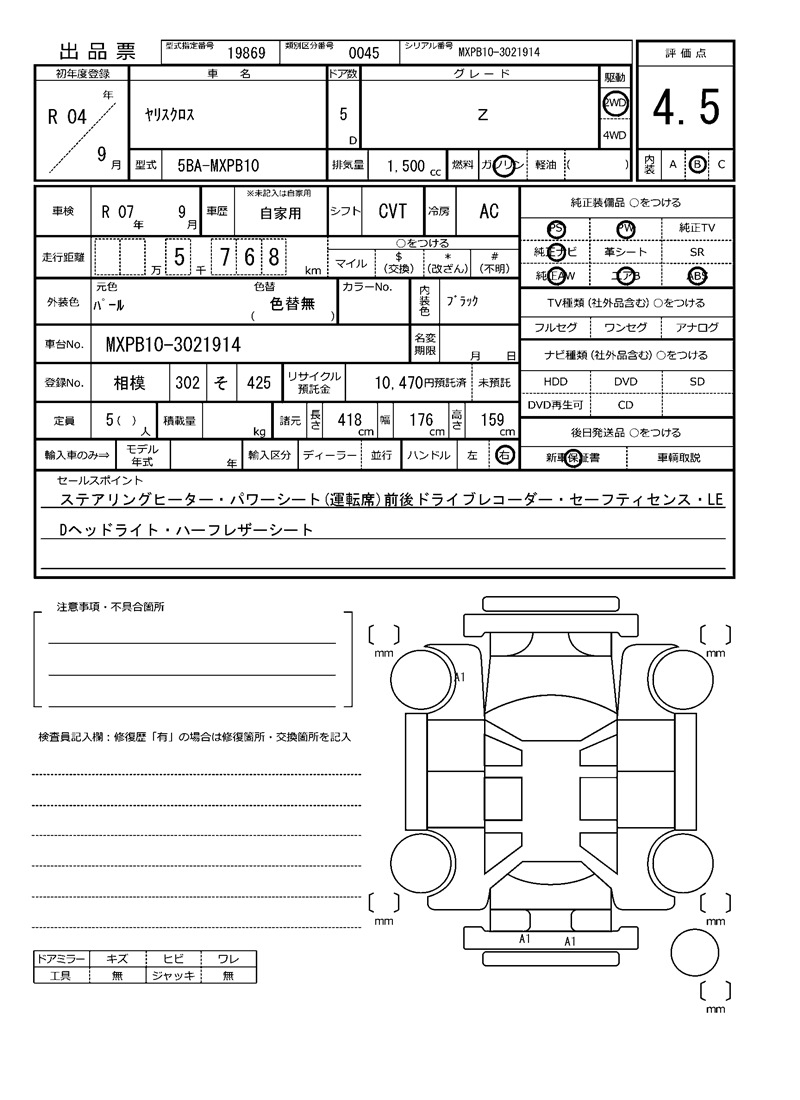 出品票 型式指定番号 19869 類別区分番号 0045 シリアル番号 MXPB10-3021914
評価点
4.5
内装 A B C
初年度登録 車名 ドア数 グレード 駆動
R 04 年 9 月 ﾔﾘｽｸﾛｽ 5 D Z 2WD
4WD
型式 5BA-MXPB10 排気量 1,500 cc 燃料 ガソリン 軽油 ( )
車検 R 07 年 9 月 車歴 ※未記入は自家用 自家用 シフト CVT 冷房 AC
走行距離 万 5 千 7 6 8 km ○をつける
マイル $ (交換) * (改ざん) # (不明)
外装色 元色 ﾊﾟｰﾙ 色替 ( 色替無 ) カラーNo. 内装色 ﾌﾞﾗｯｸ
車台No. MXPB10-3021914 名変期限 月 日
登録No. 相模 302 そ 425 リサイクル預託金 10,470円預託済 未預託
定員 5 ( ) 人 積載量 kg 諸元 長さ 418 cm 幅 176 cm 高さ 159 cm
輸入車のみ⇒ モデル年式 年 輸入区分 ディーラー 並行 ハンドル 左 右
純正装備品 ○をつける
PS PW 純正TV
純正ナビ 革シート SR
純正AW エアB ABS
TV種類 (社外品含む) ○をつける
フルセグ ワンセグ アナログ
ナビ種類 (社外品含む) ○をつける
HDD DVD SD
DVD再生可 CD
後日発送品 ○をつける
新車保証書 車輌取説
セールスポイント
ステアリングヒーター・パワーシート(運転席)前後ドライブレコーダー・セーフティセンス・LE
Dヘッドライト・ハーフレザーシート
注意事項・不具合箇所
検査員記入欄：修復歴「有」の場合は修復箇所・交換箇所を記入
ドアミラー キズ ヒビ ワレ
工具 無 ジャッキ 無
mm
mm
A1
mm
mm
A1 A1
mm